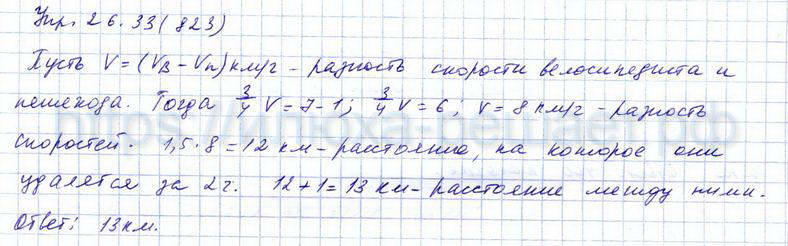 Упр. 26.33 (823)
Пусть V = (Vв – Vп) км/г – разность скорости велосипедиста и
пешехода. Тогда 3/4 V = 7 – 1; 3/4 V = 6; V = 8 км/г – разность
скоростей. 1,5 · 8 = 12 км – расстояние, на которое они
удалятся за 2г. 12 + 1 = 13 км – расстояние между ними.
Ответ: 13 км.